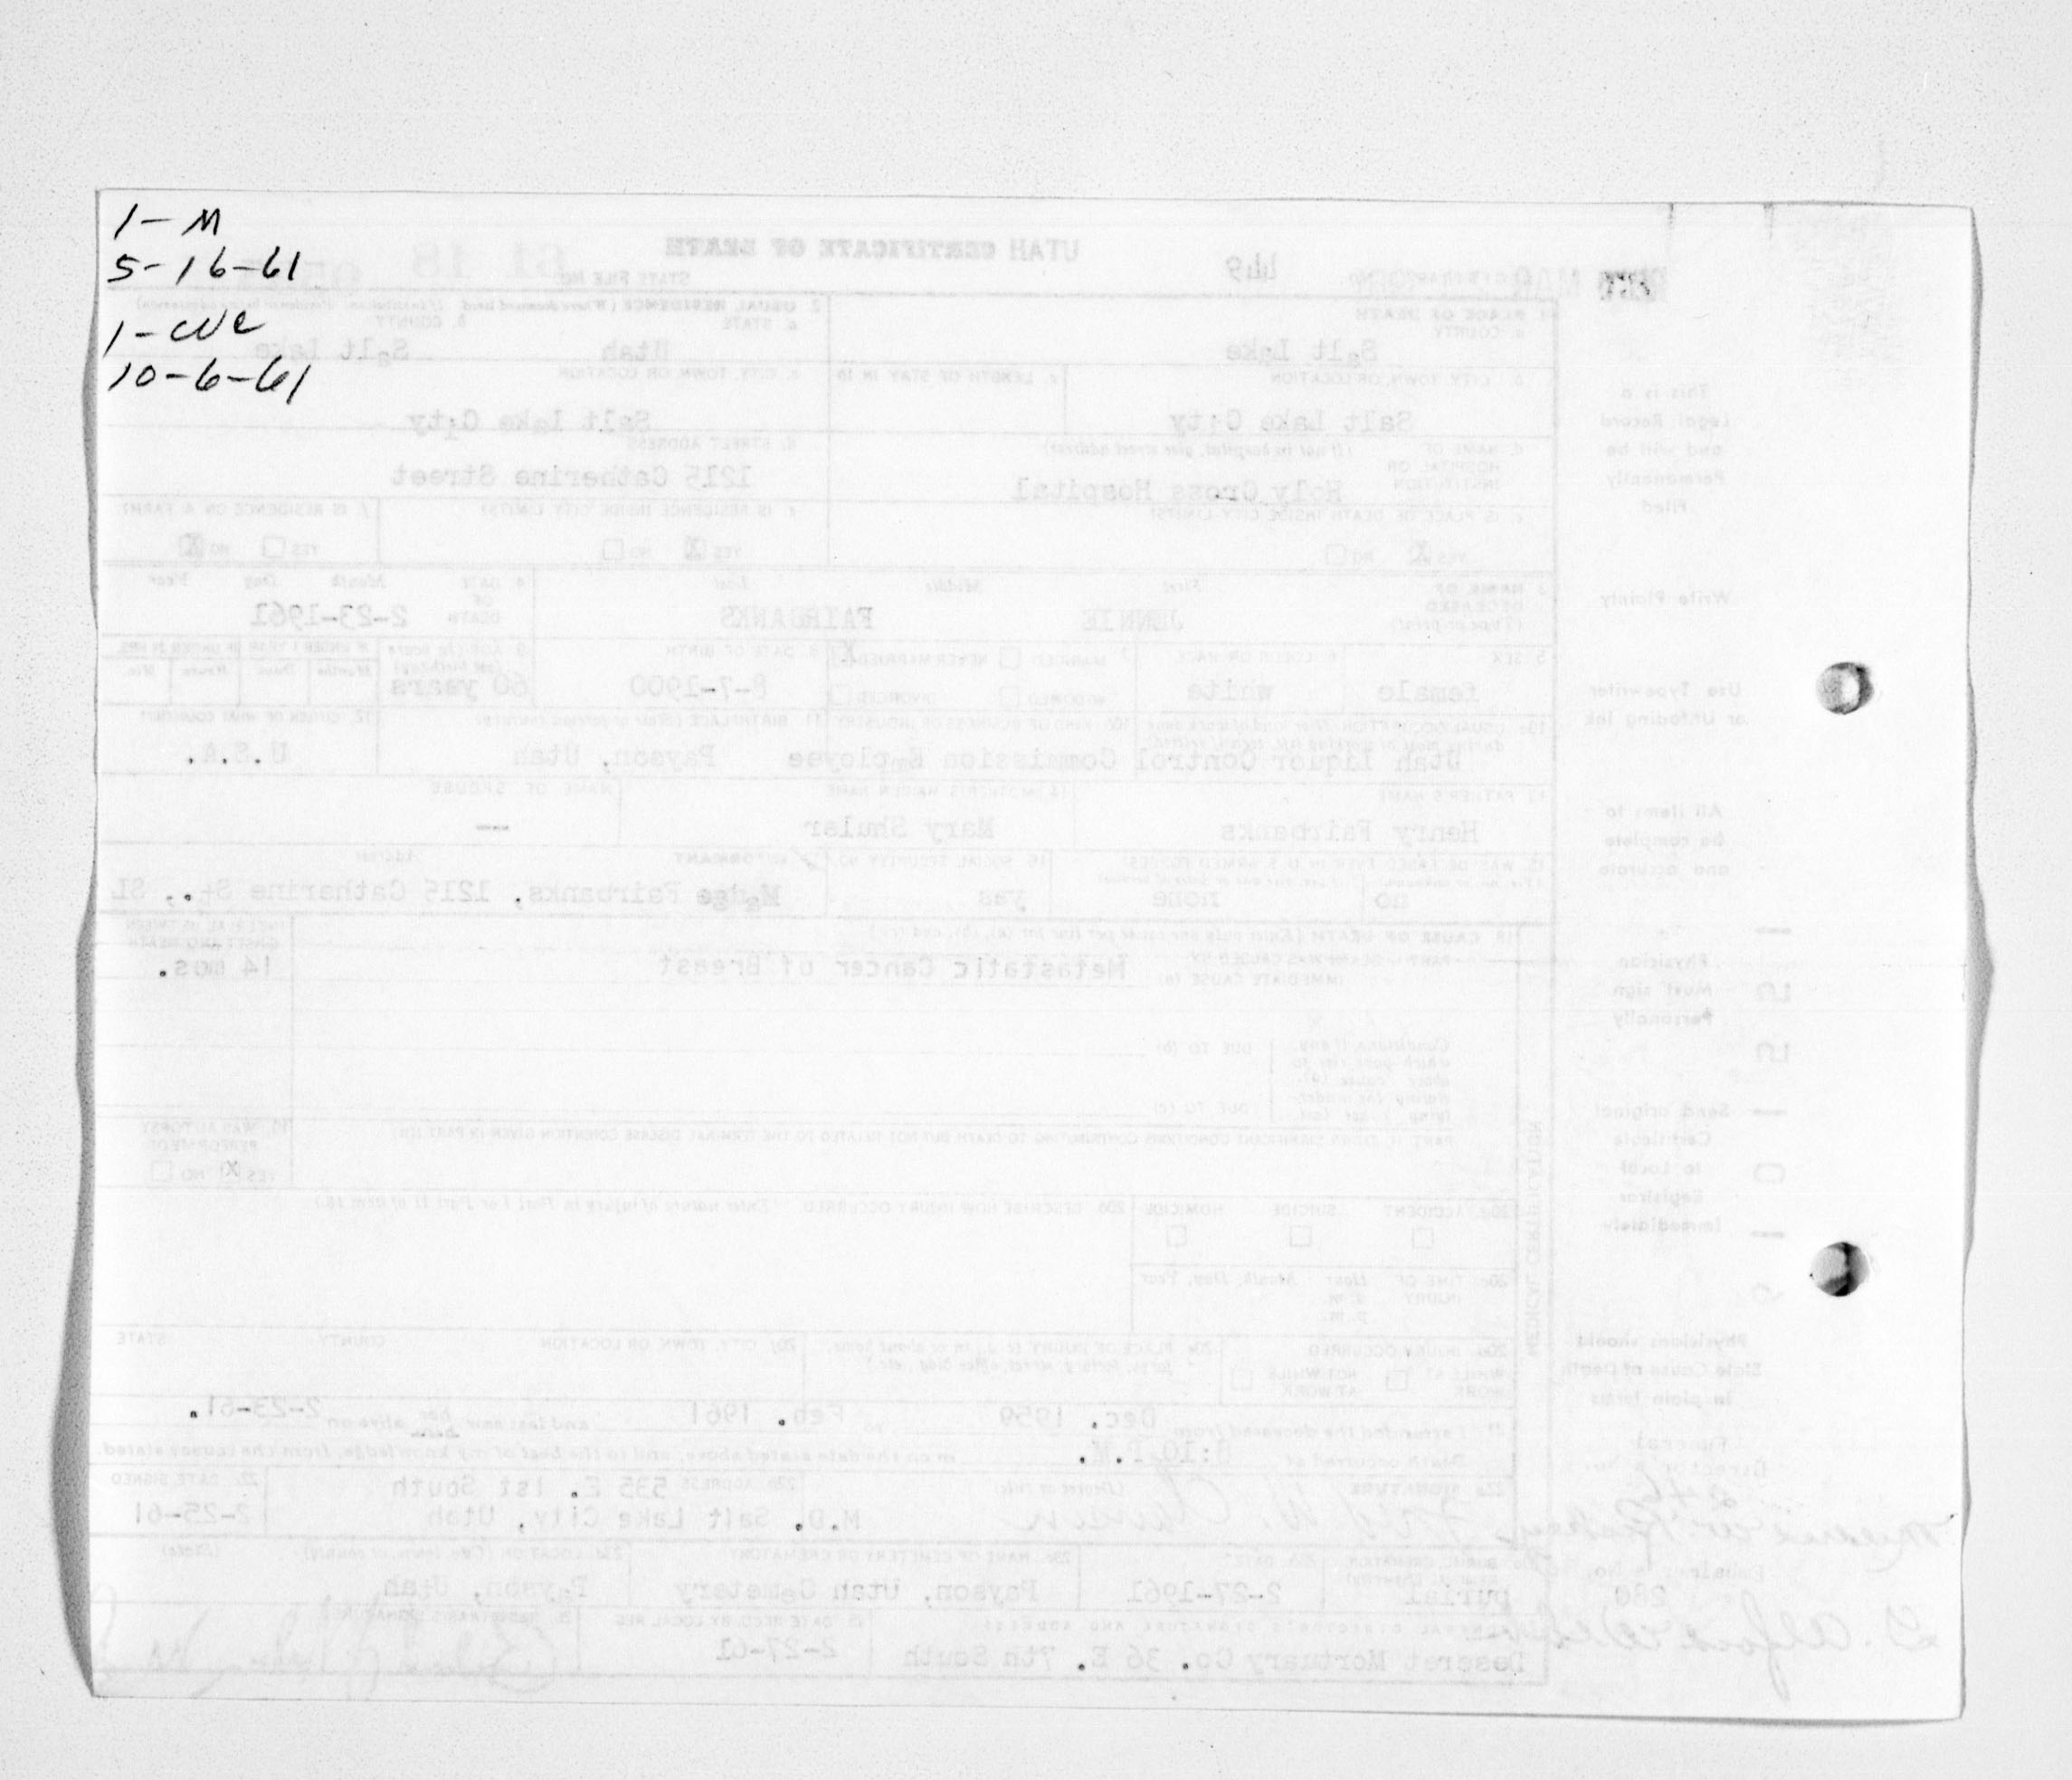 1-M
5-16-61
1-cwc
10-6-61
UTAH CERTIFICATE OF DEATH
STATE FILE NO.
449
1 PLACE OF DEATH
a. COUNTY
Salt Lake
2 USUAL RESIDENCE (Where deceased lived. If institution: residence before admission)
a. STATE b. COUNTY
Utah Salt Lake
b. CITY, TOWN, OR LOCATION
Salt Lake City
c. LENGTH OF STAY IN 1b
c. CITY, TOWN OR LOCATION
Salt Lake City
d. NAME OF HOSPITAL OR INSTITUTION (If not in hospital, give street address)
Holy Cross Hospital
d. STREET ADDRESS
1215 Catherine Street
e. IS PLACE OF DEATH INSIDE CITY LIMITS?
YES X NO
e. IS RESIDENCE INSIDE CITY LIMITS?
YES X NO
f. IS RESIDENCE ON A FARM?
YES NO X
3 NAME OF DECEASED (Type or print)
First Middle Last
JENNIE FAIRBANKS
4. DATE OF DEATH Month Day Year
2-23-1961
5 SEX
female
6. COLOR OR RACE
white
7 MARRIED NEVER MARRIED X
WIDOWED DIVORCED
8. DATE OF BIRTH
8-7-1900
9. AGE (In years last birthday)
60 years
IF UNDER 1 YEAR IF UNDER 24 HRS.
Months Days Hours Min.
10a USUAL OCCUPATION (Give kind of work done during most of working life, even if retired)
10b KIND OF BUSINESS OR INDUSTRY
Utah Liquor Control Commission Employee
11 BIRTHPLACE (State or foreign country)
Payson, Utah
12. CITIZEN OF WHAT COUNTRY?
U.S.A.
13 FATHER'S NAME
Henry Fairbanks
14 MOTHER'S MAIDEN NAME
Mary Shuler
NAME OF SPOUSE
--
15 WAS DECEASED EVER IN U.S. ARMED FORCES?
no none
16 SOCIAL SECURITY NO.
yes
17 INFORMANT Address
Madge Fairbanks, 1215 Catherine St., SL
18 CAUSE OF DEATH (Enter only one cause per line for (a), (b), and (c).)
PART I. DEATH WAS CAUSED BY:
IMMEDIATE CAUSE (a)
Metastatic Cancer of Breast
INTERVAL BETWEEN ONSET AND DEATH
14 mos.
Conditions, if any, which gave rise to above cause (a), stating the underlying cause last.
DUE TO (b)
DUE TO (c)
PART II. OTHER SIGNIFICANT CONDITIONS CONTRIBUTING TO DEATH BUT NOT RELATED TO THE TERMINAL DISEASE CONDITION GIVEN IN PART I(a)
19. WAS AUTOPSY PERFORMED?
YES X NO
20a ACCIDENT SUICIDE HOMICIDE
20b DESCRIBE HOW INJURY OCCURRED (Enter nature of injury in Part I or Part II of item 18.)
20c TIME OF INJURY Hour Month, Day, Year
a.m.
p.m.
20d INJURY OCCURRED
WHILE AT WORK NOT WHILE AT WORK
20e PLACE OF INJURY (e.g., in or about home, farm, factory, street, office bldg., etc.)
20f CITY, TOWN OR LOCATION COUNTY STATE
21 I attended the deceased from Dec. 1959 to Feb. 1961 and last saw her alive on 2-23-61.
Death occurred at 8:10 P.M. on the date stated above, and to the best of my knowledge, from the causes stated.
22a SIGNATURE (Degree or title)
M.D.
22b ADDRESS 535 E. 1st South
Salt Lake City, Utah
22c DATE SIGNED
2-25-61
23a BURIAL, CREMATION, REMOVAL (Specify)
burial
23b DATE
2-27-1961
23c NAME OF CEMETERY OR CREMATORY
Payson, Utah Cemetery
23d LOCATION (City, town, or county) (State)
Payson, Utah
FUNERAL DIRECTOR'S SIGNATURE AND ADDRESS
Deseret Mortuary Co. 36 E. 7th South
25 DATE REC'D BY LOCAL REG
2-27-61
REGISTRAR'S SIGNATURE
MEDICAL CERTIFICATION
This is a
Legal Record
and will be
Permanently
Filed
Write Plainly
Use Typewriter
or Unfading Ink
All items to
be complete
and accurate
Physician
Must sign
Personally
Send original
Certificate
to Local
Registrar
Immediately
Physicians should
State Cause of Death
in plain terms
Funeral
Director's No.
246
Embalmer's No.
280